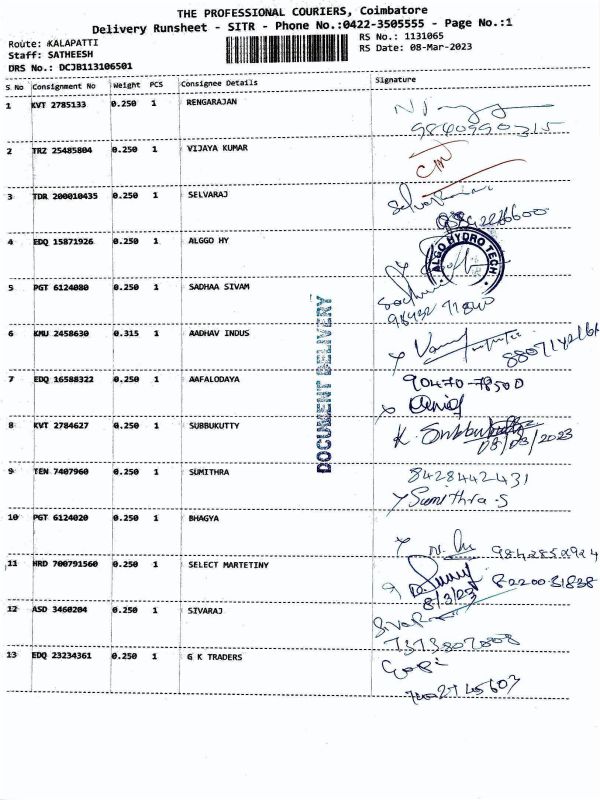 THE PROFESSIONAL COURIERS, Coimbatore
Delivery Runsheet - SITR - Phone No.:0422-3505555 - Page No.:1
Route: KALAPATTI
Staff: SATHEESH
DRS No.: DCJB113106501
RS No.: 1131065
RS Date: 08-Mar-2023
S.No Consignment No Weight PCS Consignee Details Signature
1 KVT 2785133 0.250 1 RENGARAJAN
9840990315
2 TRZ 25485804 0.250 1 VIJAYA KUMAR
3 TDR 200010435 0.250 1 SELVARAJ
4 EDQ 15871926 0.250 1 ALGGO HY
ALGO HYDRO TECH
5 PGT 6124080 0.250 1 SADHAA SIVAM
DOCUMENT DELIVERY
6 KMU 2458630 0.315 1 AADHAV INDUS
7 EDQ 16588322 0.250 1 AAFALODAYA
90470-78500
8 KVT 2784627 0.250 1 SUBBUKUTTY
K. Subbukutty
08/03/2023
9 TEN 7407960 0.250 1 SUMITHRA
8428442431
Sumithra.S
10 PGT 6124020 0.250 1 BHAGYA
9842852924
11 HRD 700791560 0.250 1 SELECT MARTETINY
8220031838
8/3/23
12 ASD 3460204 0.250 1 SIVARAJ
7373807808
13 EDQ 23234361 0.250 1 G K TRADERS
Gopi